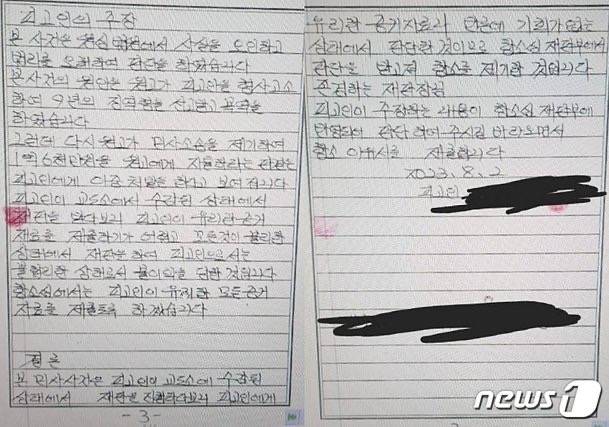 피고인의 주장
본 사건은 원심 법원에서 사실을 오인하고
법리를 오해하여 판단을 하였습니다
본 사건의 원인은 원고가 피고인을 형사고소
하여 9년의 징역형을 선고받고 복역을
하였습니다
그런데 다시 원고가 민사소송을 제기하여
1억 6천만원을 원고에게 지불하라는 판결은
피고인에게 이중 처벌을 한다고 보여집니다
피고인이 교도소에서 수감된 상태에서
재판을 받다보니 피고인의 유리한 증거
자료를 제출하기가 어렵고 모든것이 불리한
상태에서 재판을 하여 피고인으로서는
불합리한 상태로서 불이익을 당한 것입니다
항소심에서는 피고인이 유리한 모든 증거
자료를 제출토록 하겠습니다
결론
본 민사사건은 피고인이 교도소에 수감된
상태에서 재판을 진행하다보니 피고인에게
- 3 -
유리한 증거자료와 반론에 기회가 없는
상태에서 판단한 것이므로 항소심 재판부에서
판단을 받고져 항소를 제기한 것입니다
존경하는 재판장님
피고인이 주장하는 내용이 항소심 재판부에
반영되어 판단하여 주시길 바라오면서
항소 이유서를 제출합니다
2023. 8. 2
피고인
news1